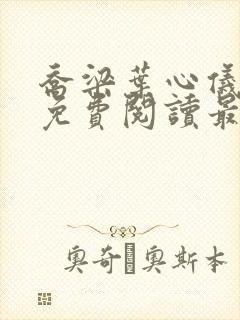 喬梁葉心儀
免費閱讀最
奧奇 奧斯本